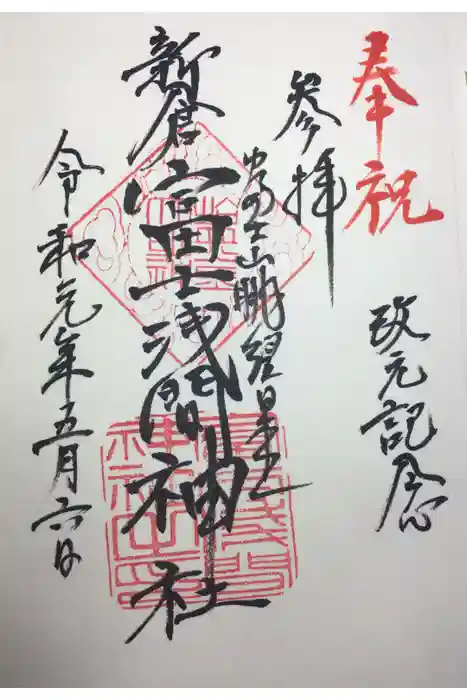 奉祝
改元記念
参拝
富士山眺望日本一
新倉富士浅間神社
令和元年五月六日